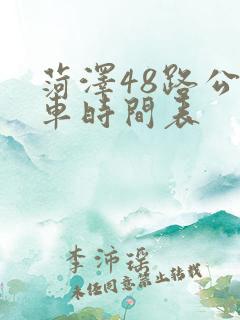 菏澤48路公
車時間表
李沛瑶
未经同意禁止转载